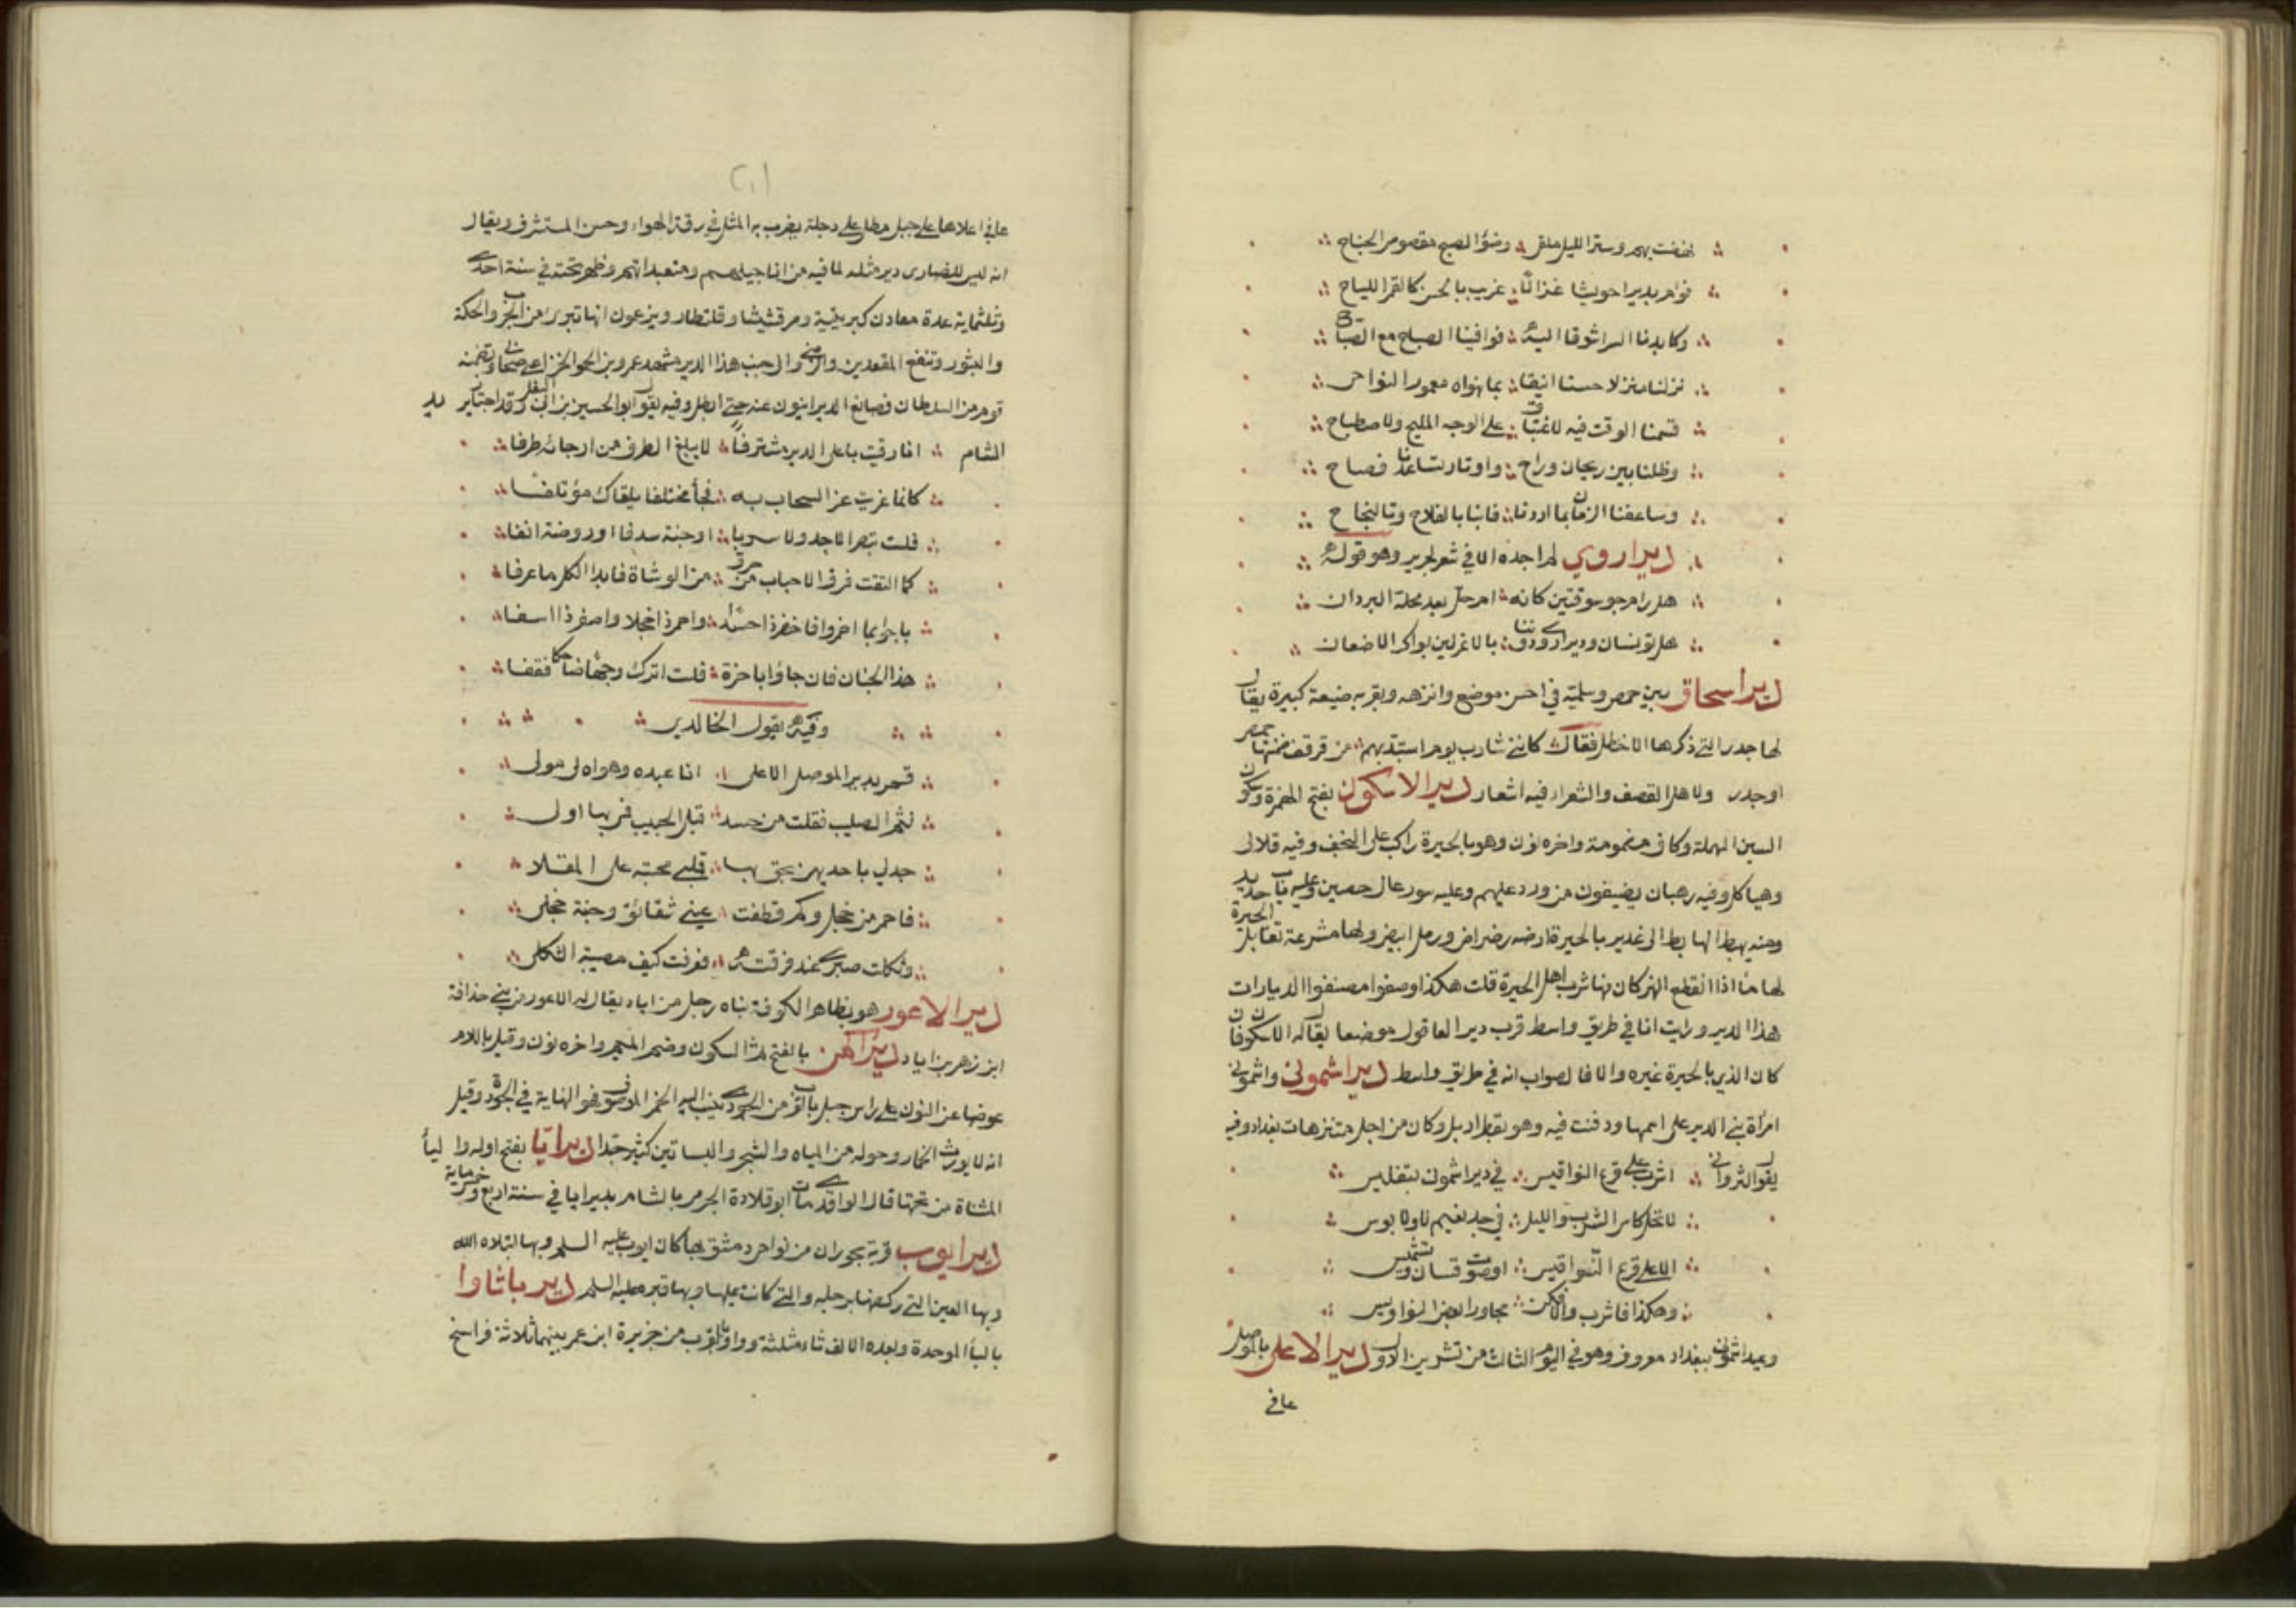 نهضت بهم وستر الليل ملقى وضوء الصبح مقصوص الجناح
نؤم بدير احويشا غزالا غريب الحسن كالقمر اللياح
وكابدنا السرا شوقا اليه فوافينا الصباح مع الصباح
نزلنا منزلا حسنا انيقا بما نهواه معمور النواحى
قسمنا الوقت فيه لاغتباق على الوجه المليح ولاصطباح
وظلنا بين ريحان وراح واوتار تساعدنا فصاح
وساعفنا الزمان بما اردنا فابنا بالفلاح وبالنجاح
دير اروى لم اجده الا في شعر لجرير وهو قوله
هل رام جو سويقتين مكانه ام حل بعد محلة البردان
هل تونسان ودير اروى دوننا بالاعزلين بواكر الاضعان
دير اسحاق بين حمص وسلمية في احسن موضع وانزهه وبقربه ضيعة كبيرة يقال
لها جدر التى ذكرها الاخطل فقال كاننى شارب يوم استبد بهم من قرقف ضمنتها حمص
او جدر ولاهل القصف والشعراء فيه اشعار دير الاسكون بفتح الهمزة وسكون
السين المهملة وكاف مضمومة واخره نون وهو بالحيرة راكب على النجف وفيه قلالى
وهياكل وفيه رهبان يضيفون من ورد عليهم وعليه سور عال حصين وعليه باب حديد
ومنه يهبط الهابط الى غدير بالحيرة ارضه رضراض ورمل ابيض ولها مشرعة تقابل الحيرة
لها ماء اذا انقطع النهر كان منها شرب اهل الحيرة قلت هكذا وصفوا مصنفوا الديارات
هذا الدير ورايت انا في طريق واسط قرب دير العاقول موضعا يقال له الاسكون فان
كان الذي بالحيرة غيره والا فالصواب انه في طريق واسط دير اشمونى واشمونى
امرأة بنى الدير على اسمها ودفنت فيه وهو بقطربل وكان من اجل متنزهات بغداد وفيه
يقول الثروانى اشرب على قرع النواقيس في دير اشمونى بتغليس
لا تخل كاس الشرب والليل في حد نعيم لا ولا بوس
الا على قرع النواقيس او صوت قسان وتشميس
وهكذا فاشرب والا فكن مجاورا بعض النواويس
وعيد اشمونى ببغداد معروف وهو في اليوم الثالث من تشرين الاول دير الاعلى بالموصل
عافى
٢٠١
عافى اعلاها على جبل مطل على دجلة يضرب به المثل في رقة الهواء وحسن المستشرف ويقال
انه ليس للنصارى دير مثله لما فيه من اناجيلهم ومتعبداتهم وظهر تحته في سنة احدى
وثلثماية عدة معادن كبريتية ومرقشيشا وقلقطار ويزعمون انها تبرى من الجرب والحكة
والبثور وتنفع المقعدين والزمنى والى جنب هذا الدير مشهد عمرو بن الحمق الخزاعى صحابى وتضمنه
قوم من السلطان فصانع الديرانيون عنه حتى ابطل وفيه يقول ابو الحسين بن ابى البغل وقد اجتاز يريد
الشام انظر رقيت باعلى الدير مشترفا لا يبلغ الطرف من ارجائه طرفا
كانما غريت عز السحاب به فجأ مختلفا يلقاك مؤتلفا
فلست تبصر الا جدولا سربا او جنة سدفا او روضة انفا
كما التقت فرق الاحباب من حرق من الوشاة فابدا الكل ما عرفا
باحوا بما اضمروا فاخضر ذا حسدا واحمر ذا خجلا واصفر ذا اسفا
هذا الجنان فان جاؤا باخرة فلست اترك وجها ضاحكا قفضا
وفيه يقول الخالدى
قمر بدير الموصل الاعلى انا عبده وهواه لى مولى
لثم الصليب فقلت من حسد قبل الحبيب فمى بها اولى
جد لى باحديهن يحيى بها قلبى محبته على المقلا
فاحمر من خجل وكم قطفت عينى شقائق وجنة خجلى
وثكلت صبرى عند فرقته فعرفت كيف مصيبة الثكلى
دير الاعور هو بظاهر الكوفة بناه رجل من اياد يقال له الاعور من بنى حذافة
ابن زهر بن اياد دير اكمن بالفتح ثم السكون وضم الميم واخره نون وقيل باللام
عوضا عن النون على راس جبل بالقرب من الجودى ينسب اليه الخمر الموصوف فهو النهاية في الجودة وقيل
انه لا يورث الخمار وحوله من المياه والشجر والبساتين كثير جدا دير ايا بفتح اوله واليأ
المثناة من تحتها قال الواقدى مات ابو قلابة الجرمى بالشام بدير ايا في سنة اربع وخمسماية
دير ايوب قرية بحوران من نواحى دمشق بها كان ايوب عليه السلم وبها ابتلاه الله
وبها العين التى ركضها برجله والتى كانت عليها وبها قبره عليه السلم دير باثاوا
بالبأ الموحدة وبعده الالف ثاء مثلثة وواو بالقرب من جزيرة ابن عمر بينهما ثلاثة فراسخ